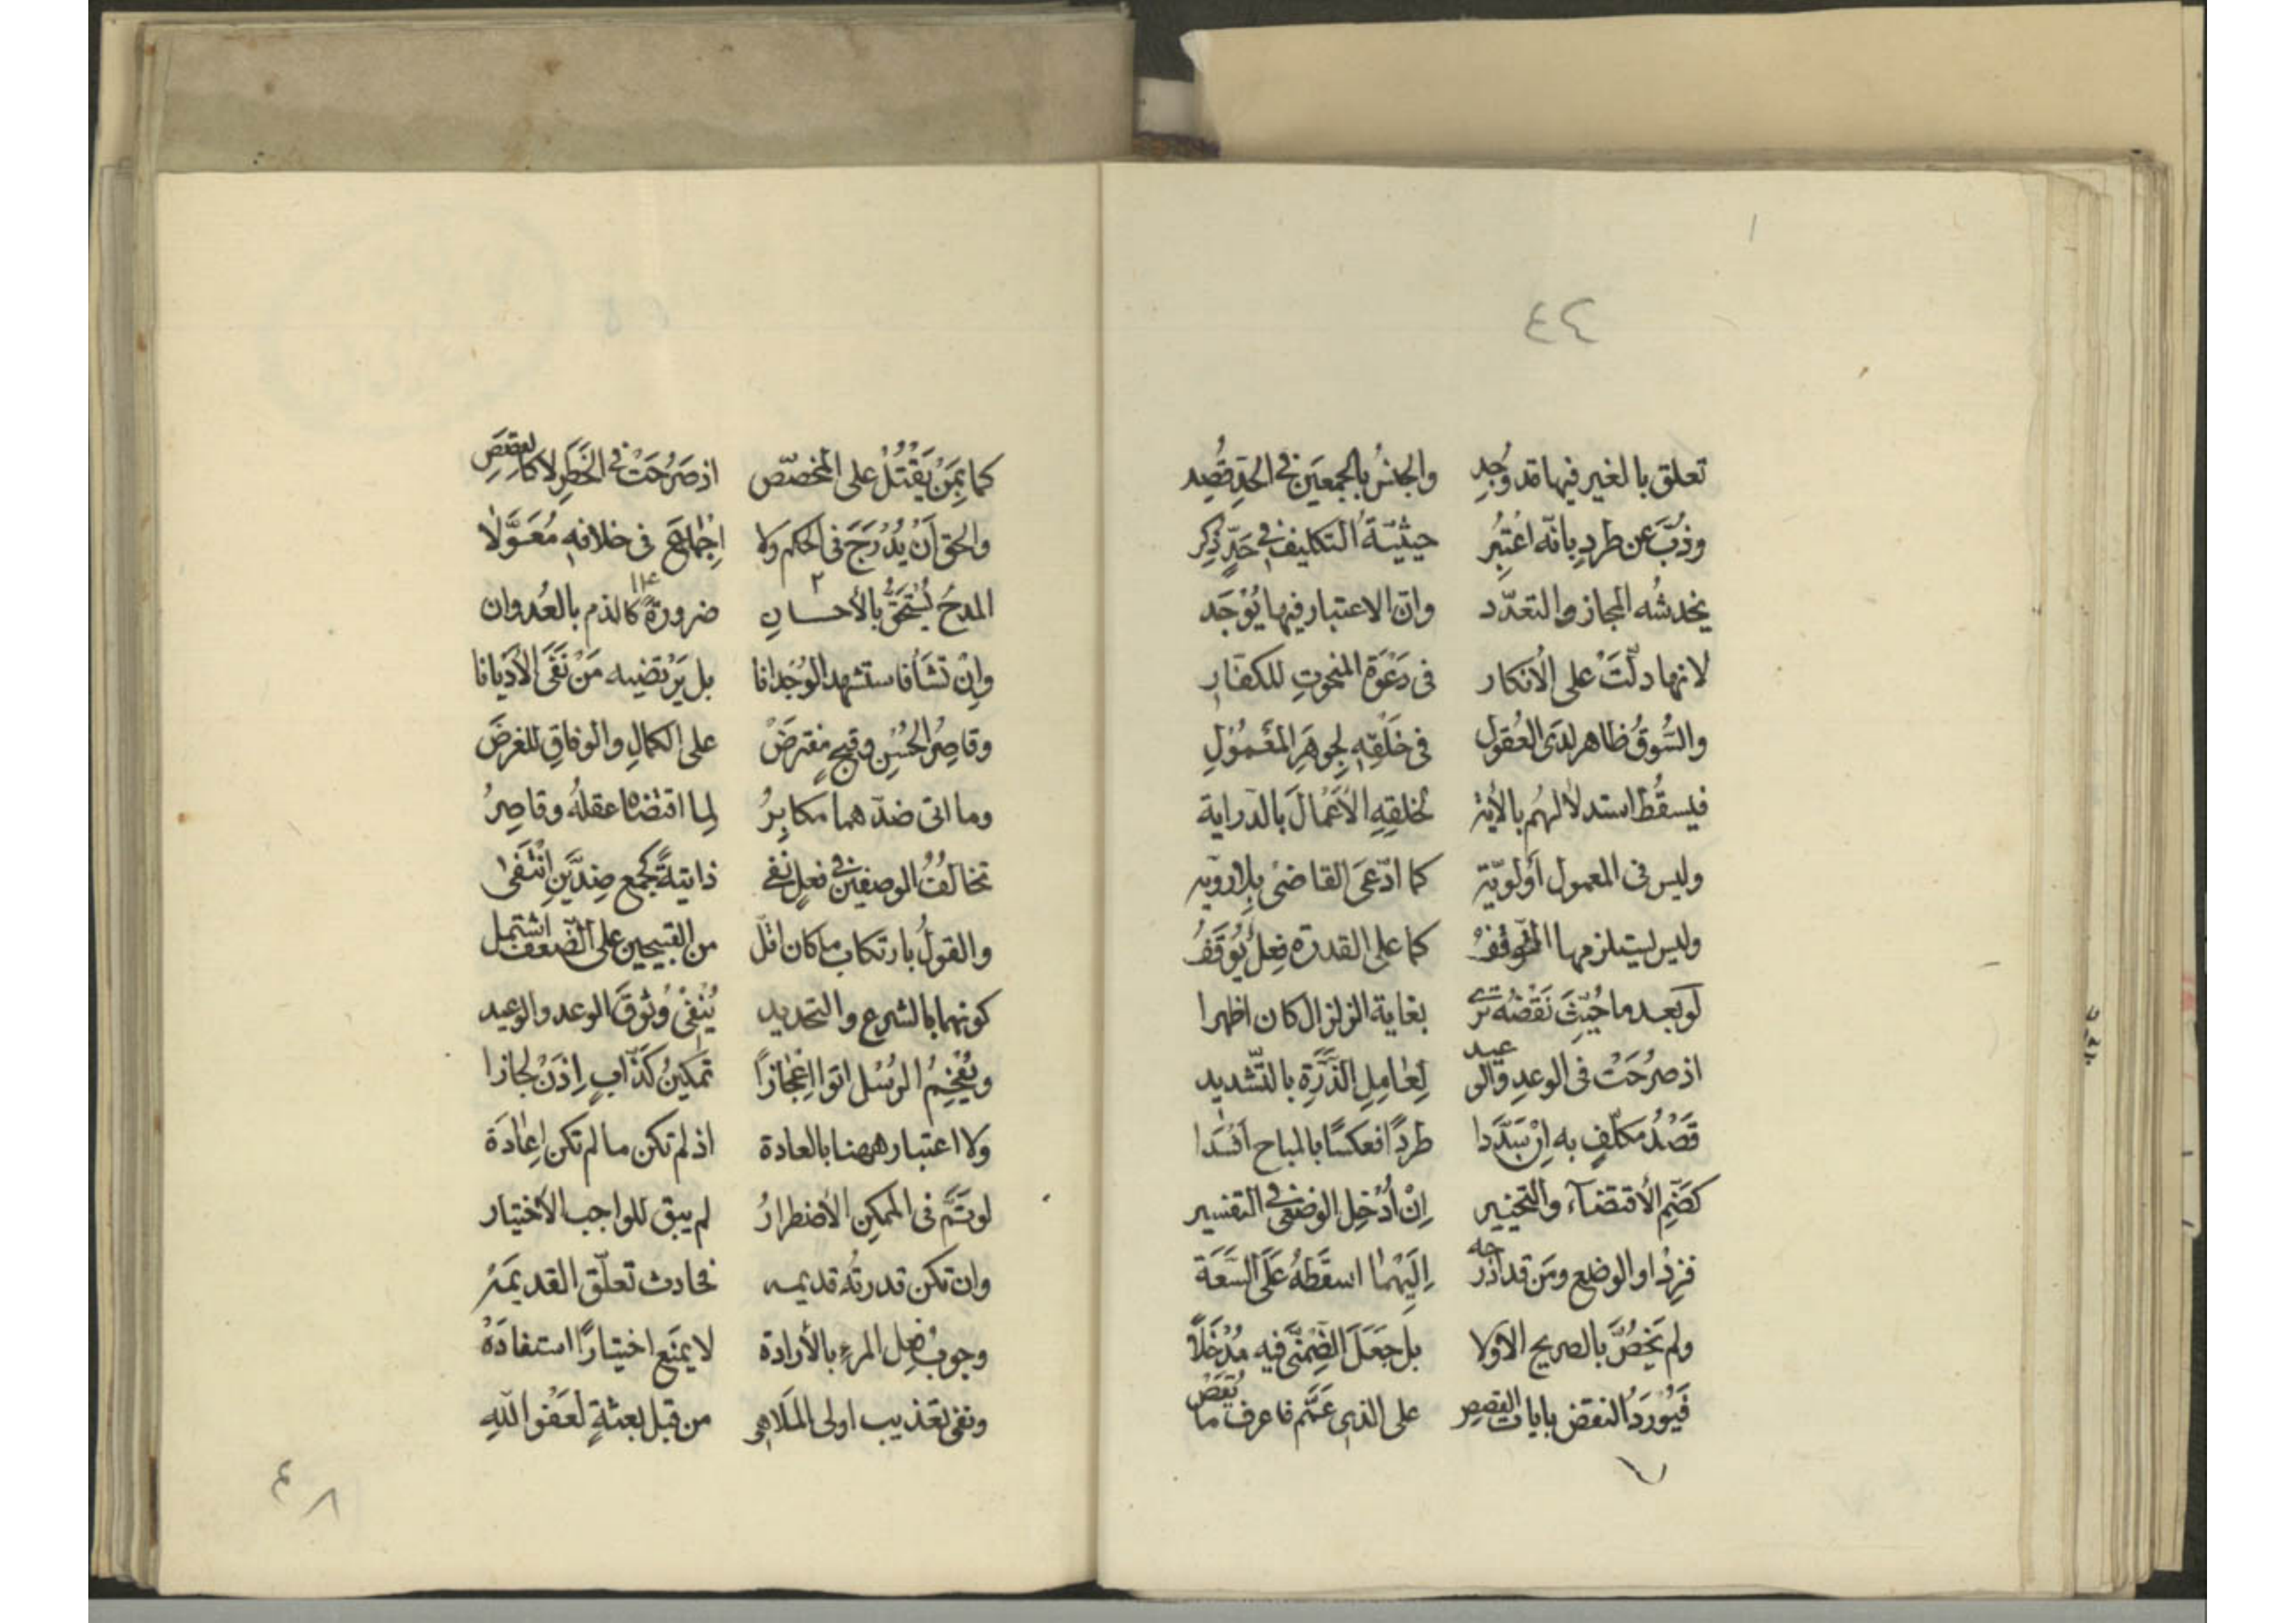 ٤٤
تعلق بالغير فيها قد وُجِد والجنسُ بالجمعَين في الحَدِّ قُصِد
وذُبَّ عن طردٍ بانّه اعتُبِرُ حيثيّةُ التكليف في حَدٍّ ذُكِر
يخدشُه المجاز والتعدّد وانّ الاعتبار فيها يُوْجَد
لانها دلّتْ على الأنكار فى دَعْوَة المنحوتِ للكفّارِ
والسُّوقُ ظاهر لدَى العُقول فى خَلْقِهِ لِجوهَرِ المَعْمُوْلِ
فيسقُطُ استدلالهُم بالأية لخلقِهِ الأَعْمَالَ بالدّراية
وليس فى المعمول أَولويّة كما ادّعىَ القاضى بِلا رويّه
وليس يستلزمها التّوقّفُ كما على القدرة فِعلٌ يُوْقَفُ
لو بعد ما حُيِّثَ نَقْضُه يُرى بغاية الزلزال كان اظهرا
اذ صرُحَتْ فى الوعدِ والوعيد لِعَامِلِ الذَّرَّةِ بالتّشديد
قَصْدُ مكلّفٍ به اِنْ بَدَّدا طردًا فعكسًا بالمباح افسَدا
كضَمِّ الأقتضآء والتخيير اِنْ أُدْخِلَ الوضعى فى التفسير
فزِدْ او الوضع ومَن قد ادرجه اِلَيْهِمَا اسقَطهُ عَلَى السَّعَة
ولم يَخُصَّ بالصريح الاوّلا بل جَعَلَ الضِّمْنَّى فيه مُدْخَلًا
فَيُوْرَدُ النقض بايات القصص على الذى عَمَّم فاعرف ما تُقَصّ
٧
كما بِمَنْ يَقْتُلْ على المخصّص اذ صَرُحَتْ فى الخَطَرِ لا كالقصَصِ
والحق اَنْ يُدْرَجَ فى الحكم ولا اِجْمَاعَ فى خلافهِ مُعَوَّلًا
المدحُ يُسْتَحَقُّ بالأحسانِ ضرورةً كالذم بالعُدوان
وإنْ تَشَأْ فاستشهد الوُجْدانا بل يَرْتضيه مَنْ نَفَى الأَدْيانا
وقاصِرُ الحُسْنِ وقبحٍ مفترَضْ على الكمالِ والوفاقِ للغرضْ
وما اتى ضدّهما مكابِرُ لِما اقتضاه عقلهُ وقاصِرُ
تخالُفُ الوصفين فى فعلٍ نفى ذاتيةً كجمع ضِدَّيْنِ انْتَفٰى
والقولُ بارتكاب ما كان اقلّ من القبيحين على الضّعف اشتمل
كونهما بالشرع والتحديد يُنْفىْ وُثوقَ الوعد والوعيد
ويُفْحِمُ الرُسُل اتوا اِعْجَازًا تمكينُ كَذّابٍ اِذَنْ لجازا
ولا اعتبار ههنا بالعادة اذ لم تكن ما لم تكن اِعَادَة
لو تَمَّ فى الممكِنِ الأضطرارُ لم يبق للواجب الأختيار
وان تكن قدرتُه قديمه فحادث تعلّق القديمَة
وجوبُ فعل المرءِ بالأرادة لا يمنَع اختيارًا استفادَهْ
ونفى تعذيب اولى المَلاهى من قبل بعثةٍ لعَفْوِ اللهِ